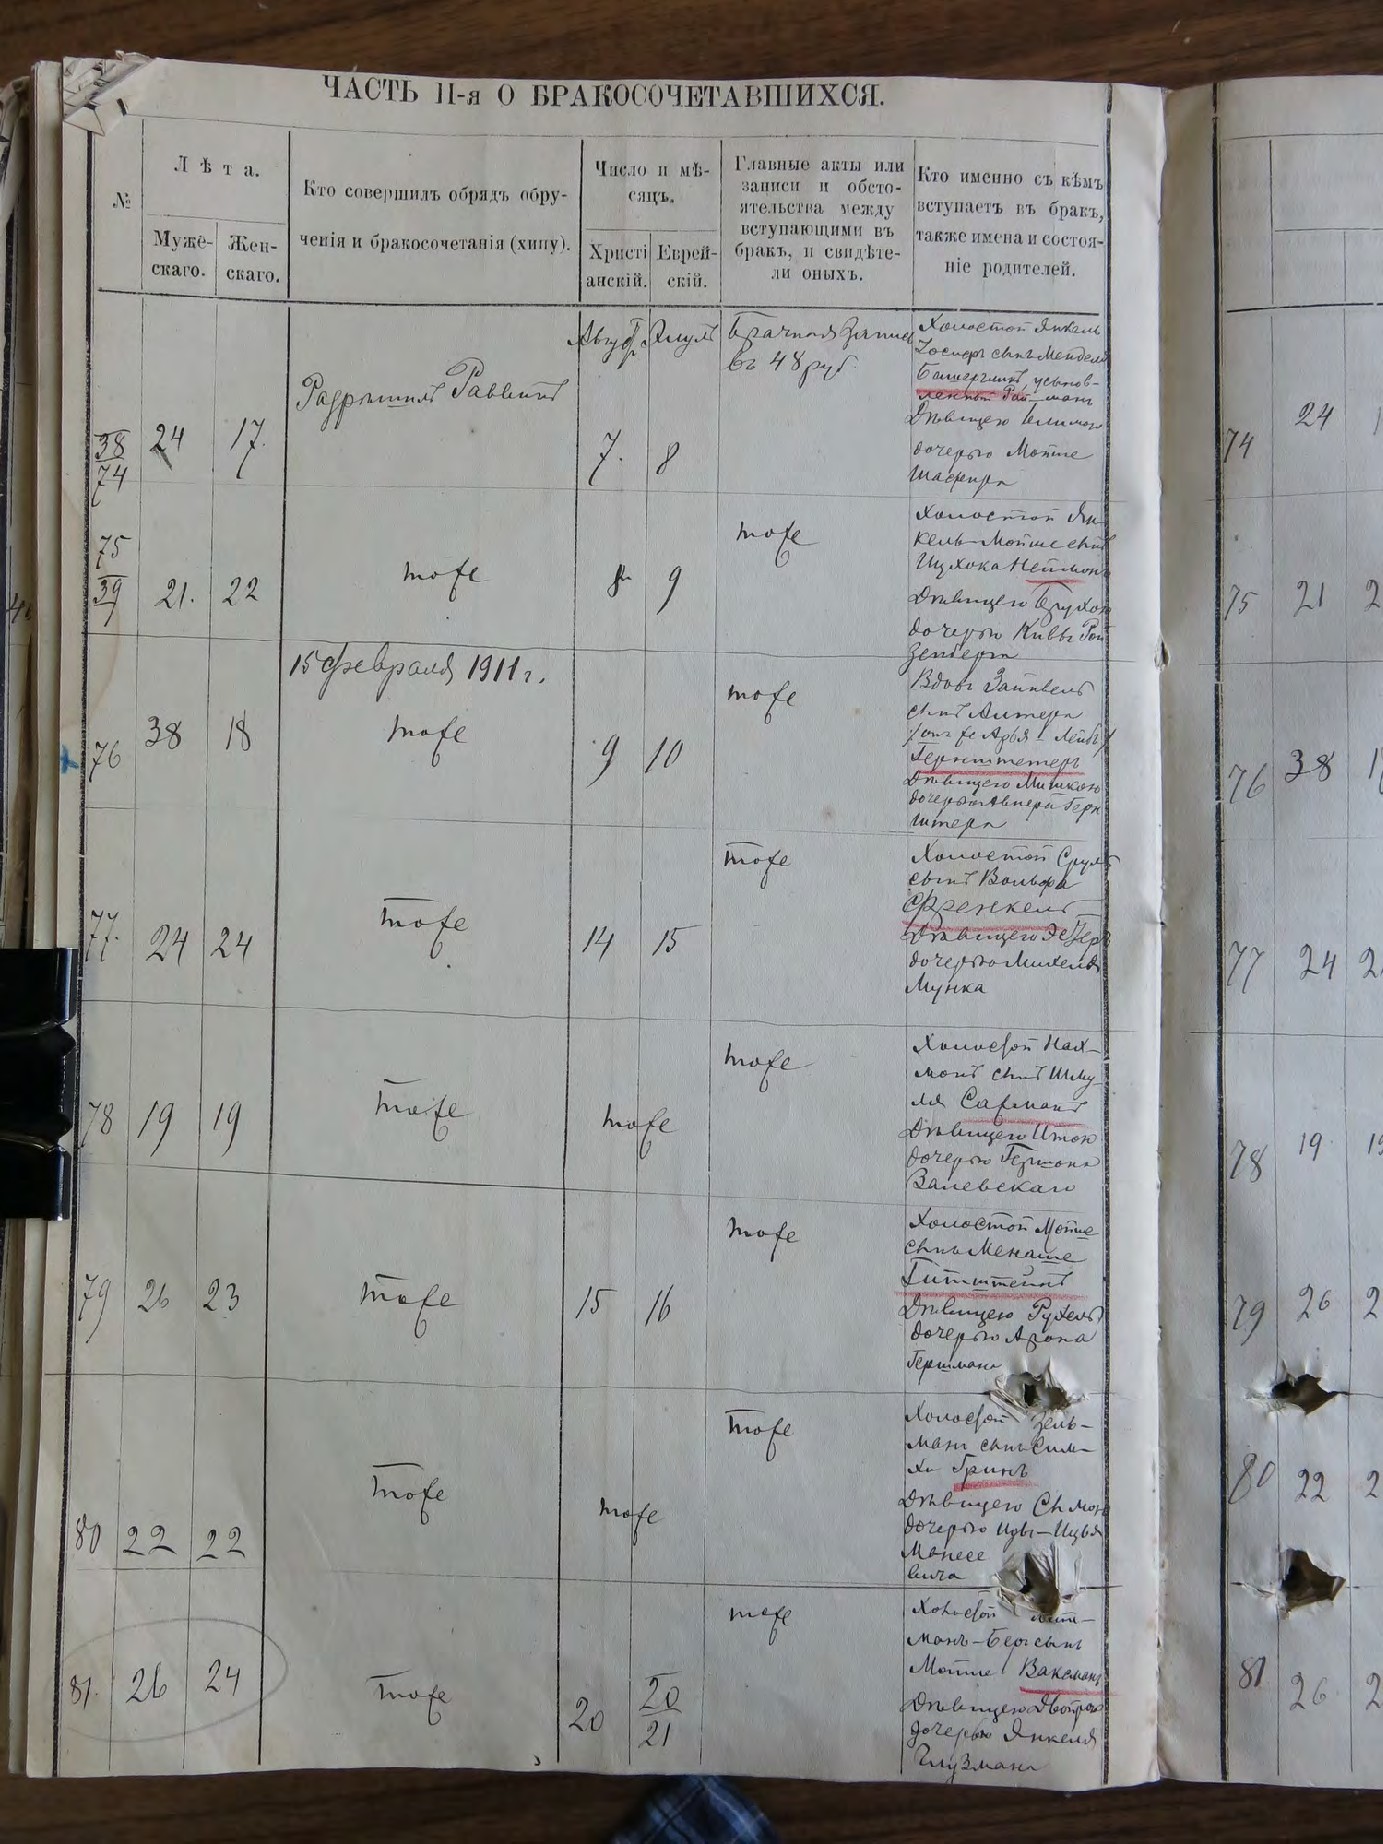 ЧАСТЬ II-я О БРАКОСОЧЕТАВШИХСЯ.
№
Лѣта.
Муже-
скаго.
Жен-
скаго.
Кто совершилъ обрядъ обру-
ченія и бракосочетанія (хипу).
Число и мѣ-
сяцъ.
Христі
анскій.
Еврей-
скій.
Главные акты или
записи и обсто-
ятельства между
вступающими въ
бракъ, и свидѣте-
ли оныхъ.
Кто именно съ кѣмъ
вступаетъ въ бракъ,
также имена и состоя-
ніе родителей.
38
74
24
17.
Разрѣшилъ Раввинъ
7.
8
Брачная запись
въ 48 руб.
Холостой Янкель
Іосифъ сынъ Менделя
Дѣвицею
дочерью Мотте
Шафира
75
39
21.
22
тоже
8
9
тоже
Холостой Ян-
кель-Мотте сынъ
Ицхока Нейманъ
Дѣвицею Брухою
дочерью Кивы Рой
зенберга
15 февраля 1911 г.
76
38
18
тоже
9
10
тоже
Вдовъ Зайвель
сынъ Алтера
Дѣвицею
77.
24
24
тоже
14
15
тоже
Холостой Сруль
сынъ Вольфа
Френкель
Дѣвицею Эстеръ
дочерью Михеля
Мунка
78
19
19
тоже
тоже
тоже
Холостой Нах-
манъ сынъ Шму-
ля Сафманъ
Дѣвицею Итою
дочерью Гершона
Валевскаго
79
26
23
тоже
15
16
тоже
Холостой Мотте
сынъ Менаше
Гитштейнъ
Дѣвицею Рухель
дочерью Арона
Гершмана
80
22
22
тоже
тоже
тоже
Холостой Зель-
манъ сынъ Сим-
хи Гринъ
Дѣвицею
дочерью
Манесе
вича
81.
26
24
тоже
20
20
21
тоже
Холостой
манъ-Беръ сынъ
Мотте Ваксманъ
Дѣвицею Двойрою
дочерью Янкеля
Глузмана
74
24
75
21
76
38
77
24
78
19
79
26
80
22
81
26